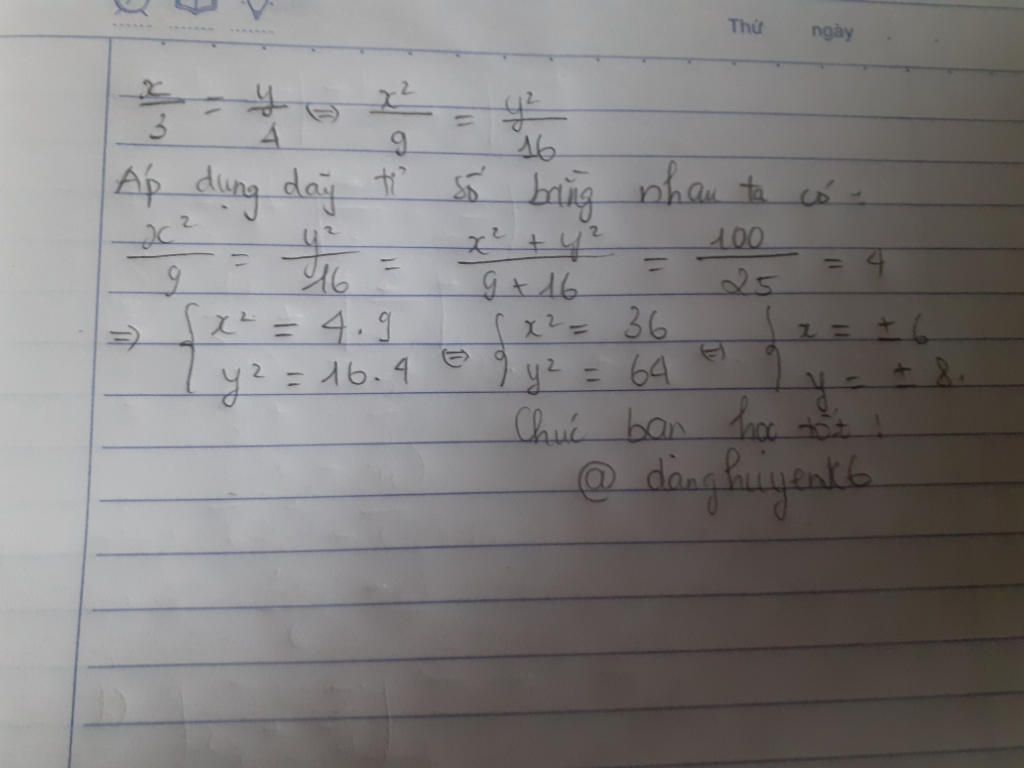 Thứ ngày
x/3 = y/4 (=) x²/9 = y²/16
Áp dụng dãy tỉ số bằng nhau ta có =
x²/9 = y²/16 = x² + y²/9 + 16 = 100/25 = 4
=> { x² = 4.9 (=) { x² = 36 (=) { x = ± 6
y² = 16.4 y² = 64 y = ± 8.
Chúc bạn học tốt !
@ dànghuyenk6